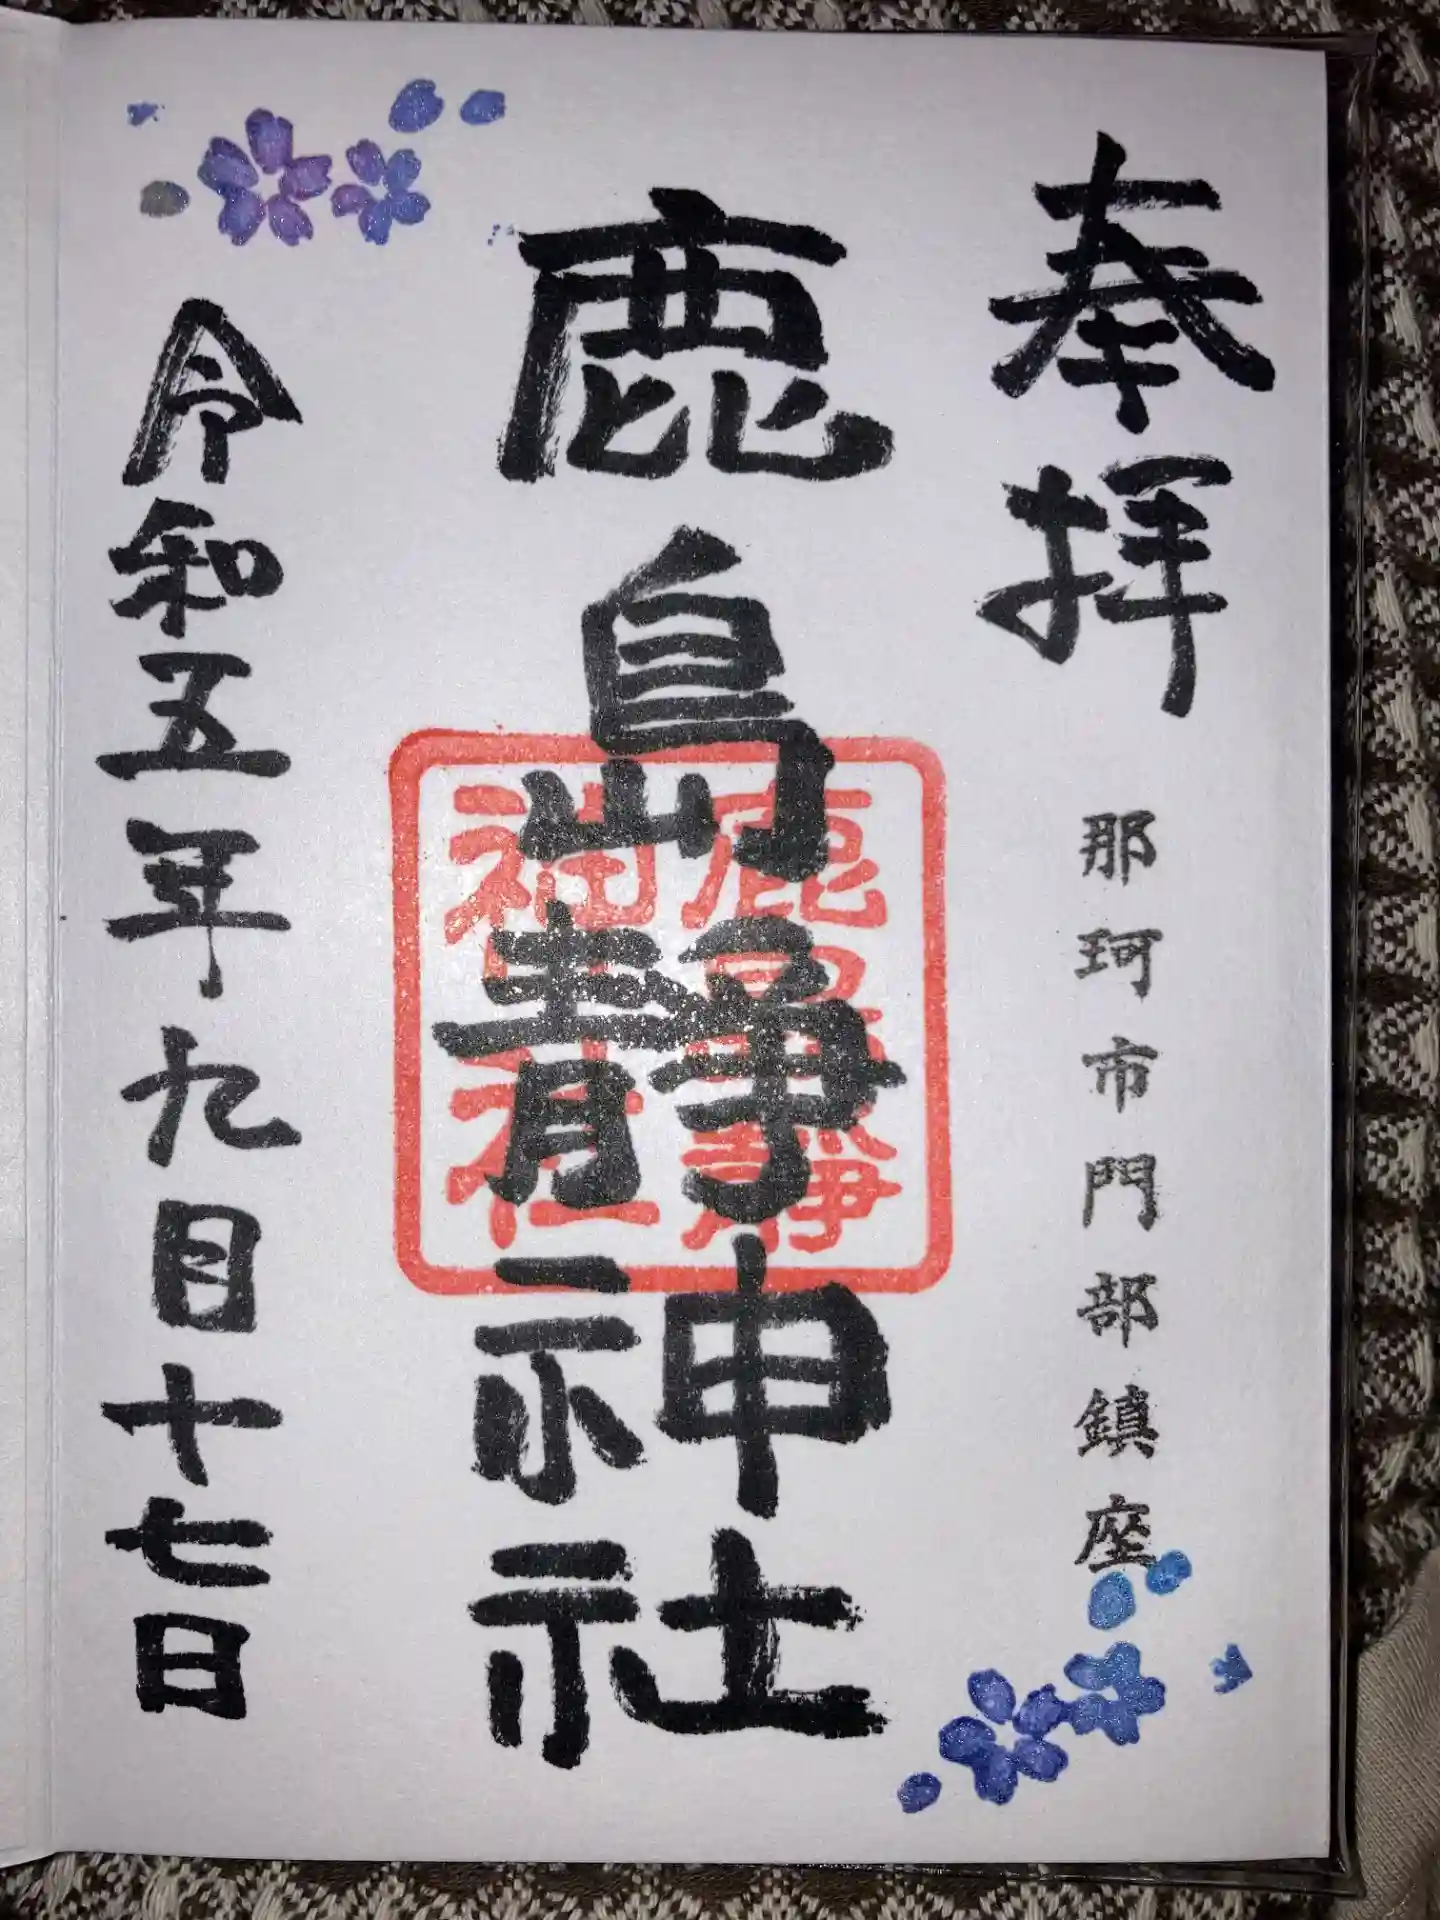 奉拝
那珂市門部鎮座
鹿島静神社
鹿島静
神社
令和五年九月十七日